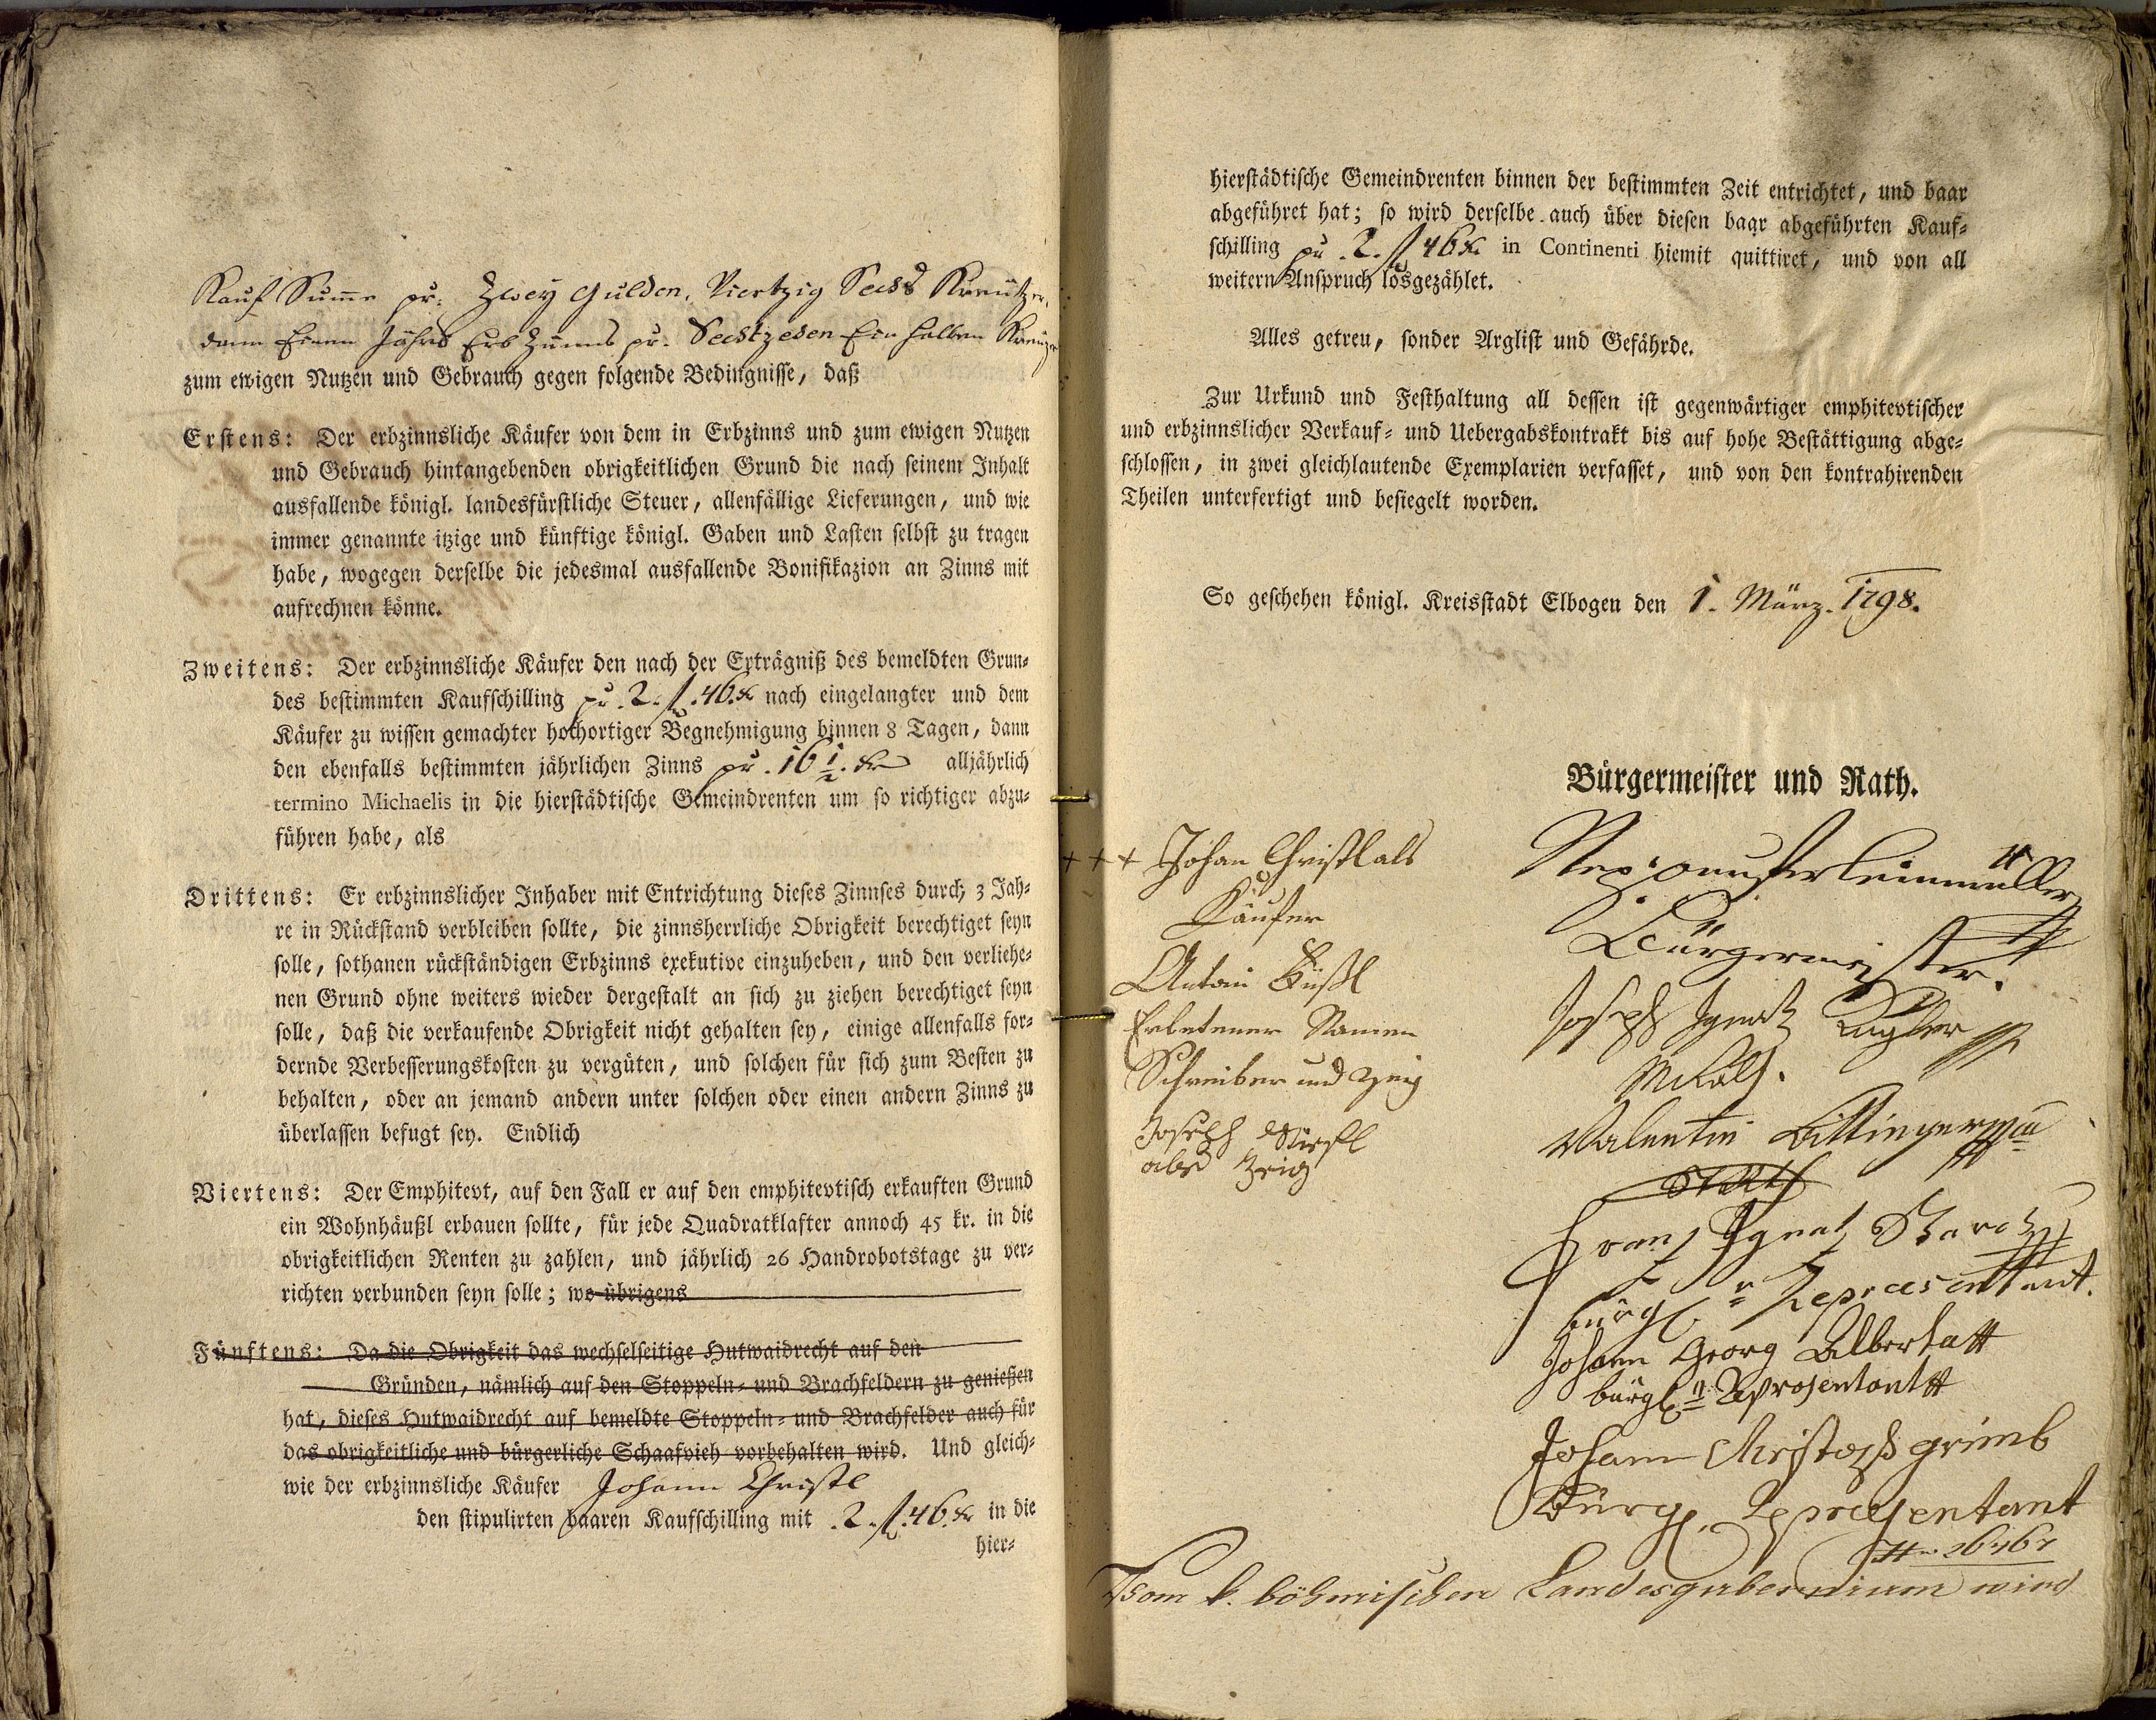 Kauf Summe pr: Zwey Gulden, Viertzig Sechs Kreützer,
dann Einen Jahrs Erb Zünns pr. Sechtzehen Ein halben Kreuzer
zum ewigen Nutzen und Gebrauch gegen folgende Bedingnisse, daß
Erstens: Der erbzinnsliche Käufer von dem in Erbzinns und zum ewigen Nutzen
und Gebrauch hintangebenden obrigkeitlichen Grund die nach seinem Inhalt
ausfallende königl. landesfürstliche Steuer, allenfällige Lieferungen, und wie
immer genannte itzige und künftige königl. Gaben und Lasten selbst zu tragen
habe, wogegen derselbe die jedesmal ausfallende Bonifikazion an Zinns mit
aufrechnen könne.
Zweitens: Der erbzinnsliche Käufer den nach der Erträgniß des bemeldten Grun-
des bestimmten Kaufschilling pr. 2. f. 46. kr nach eingelangter und dem
Käufer zu wissen gemachter hochortiger Begnehmigung binnen 8 Tagen, dann
den ebenfalls bestimmten jährlichen Zinns pr. 16 1/2. kr alljährlich
termino Michaelis in die hierstädtische Gemeindrenten um so richtiger abzu-
führen habe, als
Drittens: Er erbzinnslicher Inhaber mit Entrichtung dieses Zinnses durch 3 Jah-
re in Rückstand verbleiben sollte, die zinnsherrliche Obrigkeit berechtiget seyn
solle, sothanen rückständigen Erbzinns exekutive einzuheben, und den verliehe-
nen Grund ohne weiters wieder dergestalt an sich zu ziehen berechtiget seyn
solle, daß die verkaufende Obrigkeit nicht gehalten sey, einige allenfalls for-
dernde Verbesserungskosten zu vergüten, und solchen für sich zum Besten zu
behalten, oder an jemand andern unter solchen oder einen andern Zinns zu
überlassen befugt sey. Endlich
Viertens: Der Emphitevt, auf den Fall er auf den emphitevtisch erkauften Grund
ein Wohnhäußl erbauen sollte, für jede Quadratklafter annoch 45 kr. in die
obrigkeitlichen Renten zu zahlen, und jährlich 26 Handrobotstage zu ver-
richten verbunden seyn solle; wo übrigens
Fünftens: Da die Obrigkeit das wechselseitige Hutwaidrecht auf den
Gründen, nämlich auf den Stoppeln- und Brachfeldern zu genießen
hat, dieses Hutwaidrecht auf bemeldte Stoppeln- und Brachfelder auch für
das obrigkeitliche und bürgerliche Schaafvieh vorbehalten wird. Und gleich-
wie der erbzinnsliche Käufer Johann Christl
den stipulirten baaren Kaufschilling mit 2. f. 46. kr in die
hier-
hierstädtische Gemeindrenten binnen der bestimmten Zeit entrichtet, und baar
abgeführet hat; so wird derselbe auch über diesen baar abgeführten Kauf-
schilling pr. 2. f 46 kr. in Continenti hiemit quittiret, und von all
weitern Anspruch losgezählet.
Alles getreu, sonder Arglist und Gefährde.
Zur Urkund und Festhaltung all dessen ist gegenwärtiger emphitevtischer
und erbzinnslicher Verkauf- und Uebergabskontrakt bis auf hohe Bestättigung abge-
schlossen, in zwei gleichlautende Exemplarien verfasset, und von den kontrahirenden
Theilen unterfertigt und besiegelt worden.
So geschehen königl. Kreisstadt Elbogen den 1. März. 1798.
Bürgermeister und Rath.
+++ Johan Christl als
Käufer
Anton
Erbetener Namen
Schreiber und Zeig
Joseph
als Zeig
Bürgermeister.
Joseph Ignatz
Valentin
Franz Ignatz
bürgl. r Repraesentant.
Johann Georg Alberta
bürgl. r Representant
Johann Christoph grimb
Bürgl. Represententant
26767
Vom k. böhmischen Landesgubernium wird